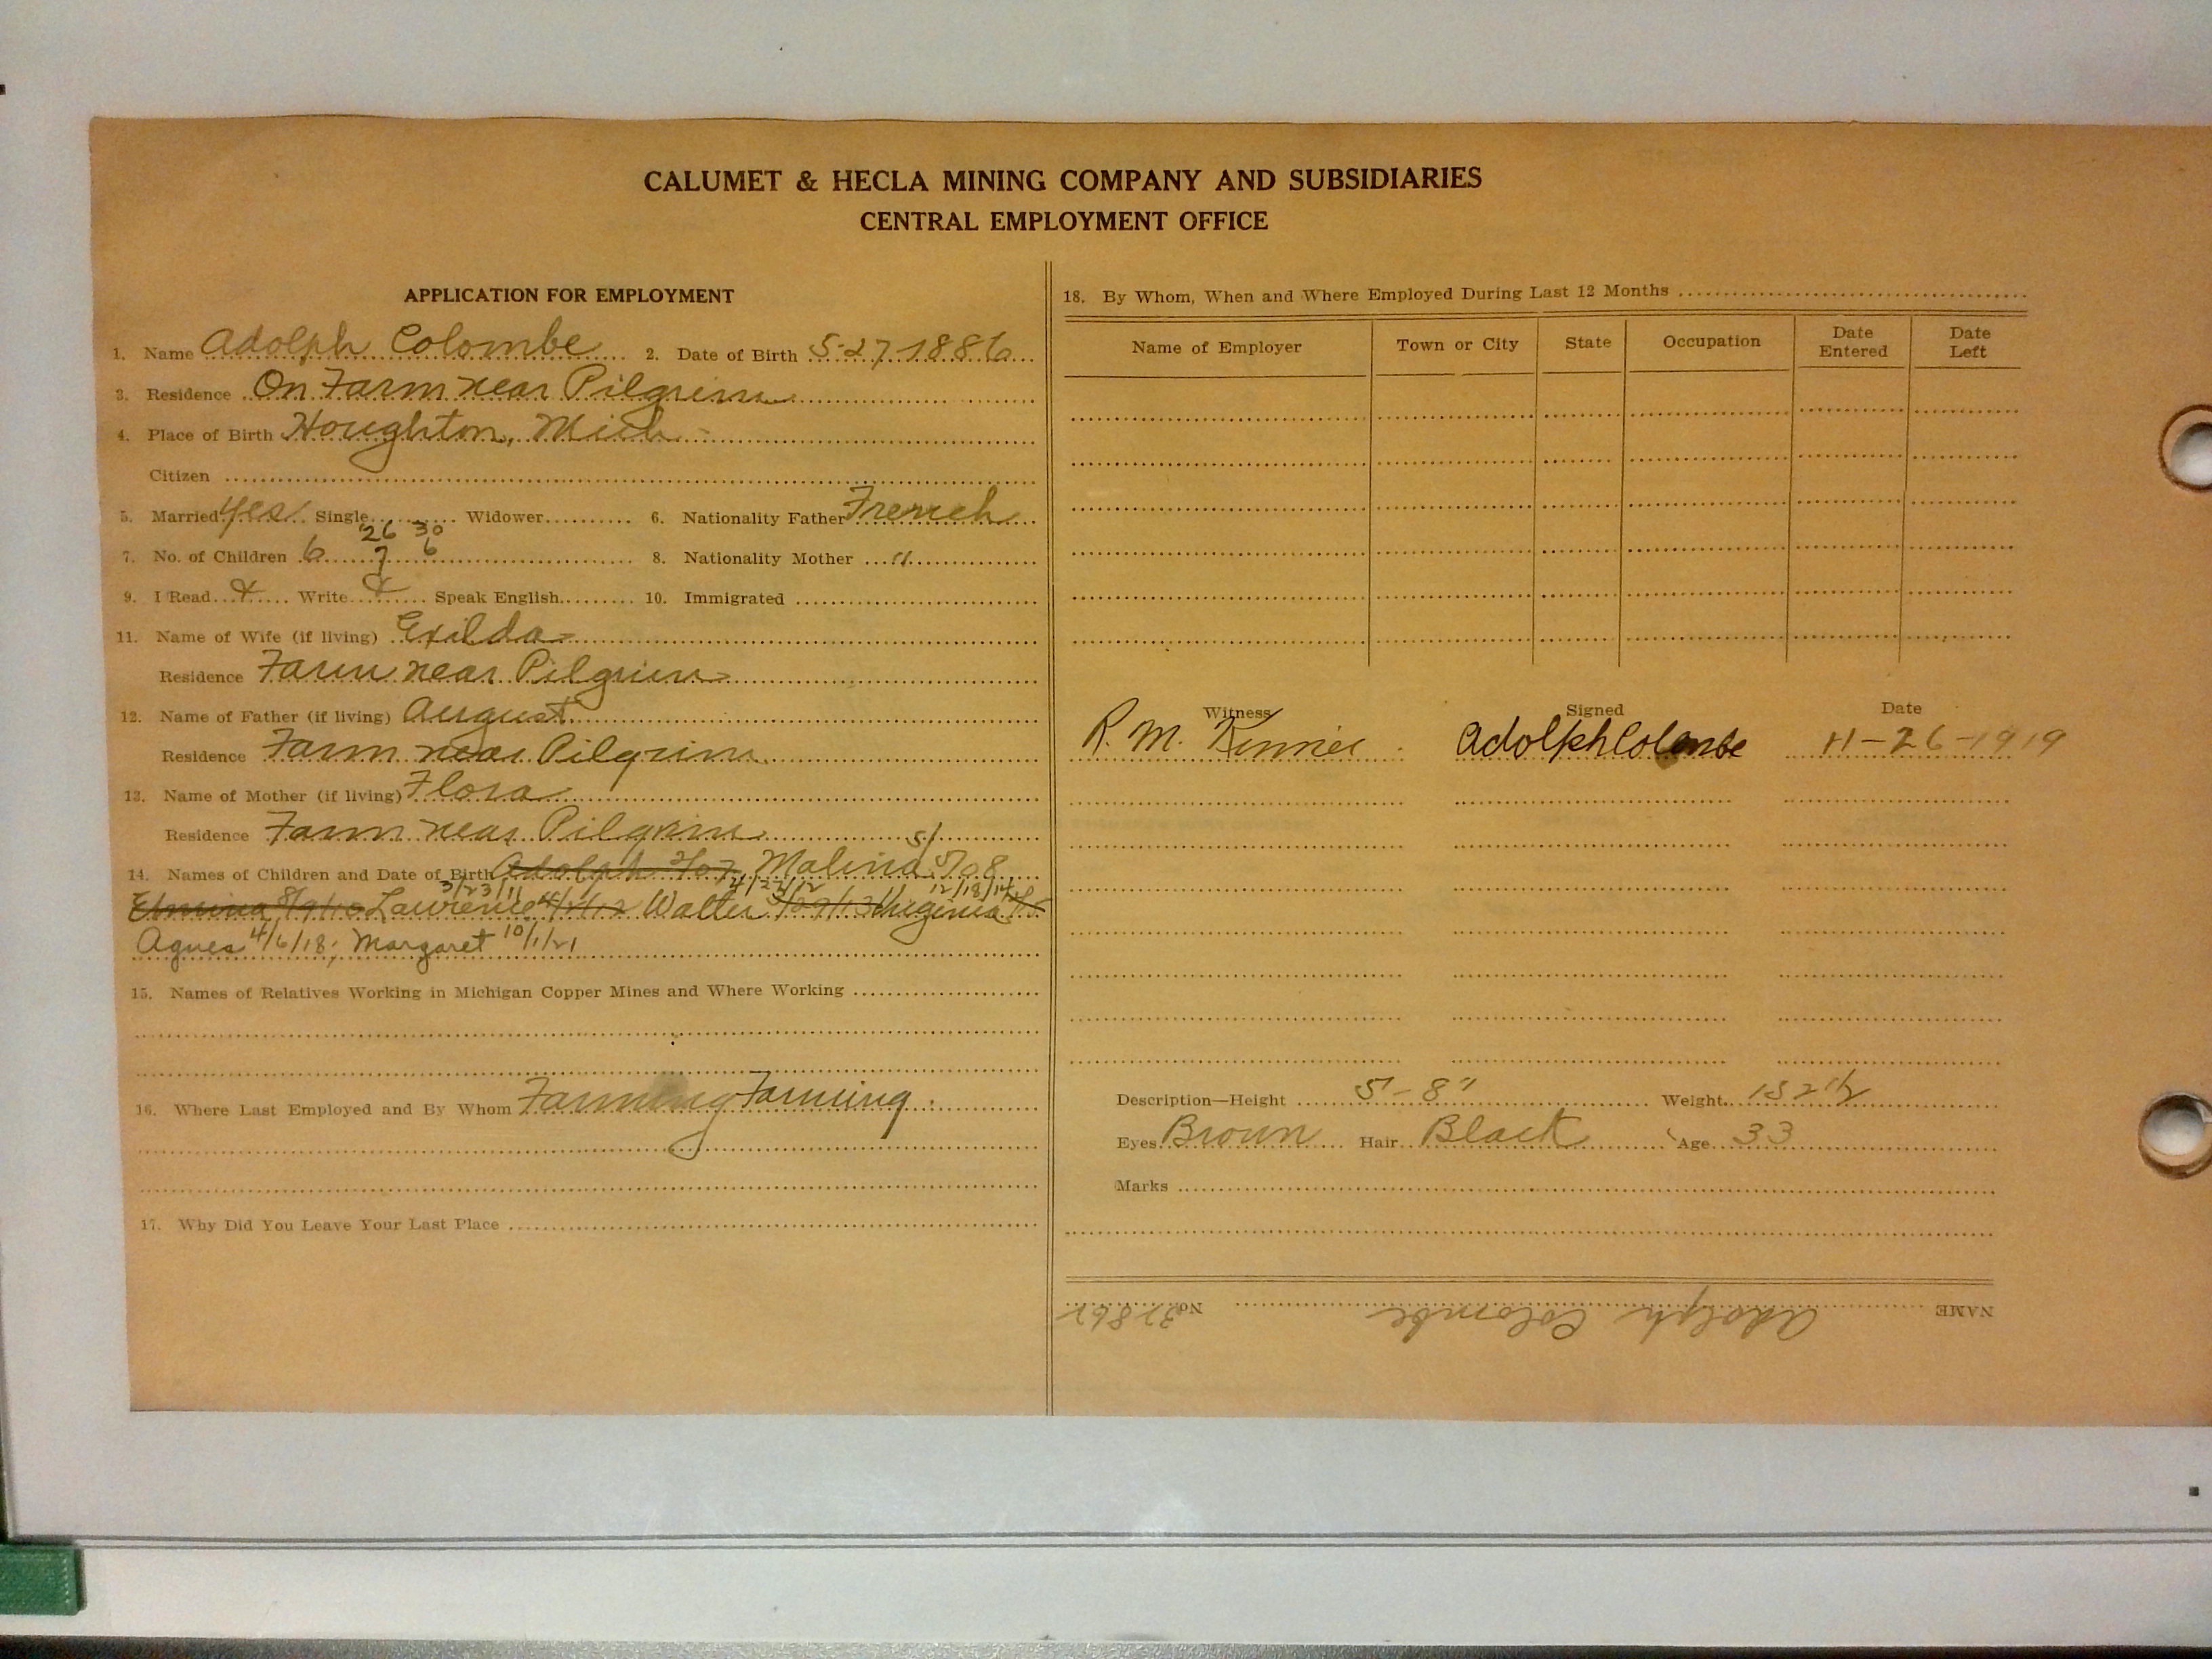 CALUMET & HECLA MINING COMPANY AND SUBSIDIARIES
CENTRAL EMPLOYMENT OFFICE
APPLICATION FOR EMPLOYMENT
1. Name Adolph Colombe 2. Date of Birth 5-27 1886
3. Residence On Farm near Pilgrim
4. Place of Birth Houghton, Mich
Citizen
5. Married Yes Single Widower 6. Nationality Father French
'26 30
7. No. of Children 6 7 6 8. Nationality Mother "
9. I Read Write Speak English 10. Immigrated
11. Name of Wife (if living) Exilda
Residence Farm near Pilgrim
12. Name of Father (if living) August
Residence Farm near Pilgrim
13. Name of Mother (if living) Flora
Residence Farm near Pilgrim
14. Names of Children and Date of Birth Adolph Malina 5/08
3/23/11 12/18/14
Lawrence Walter Virginia
Agnes 4/6/18; Margaret 10/1/21
15. Names of Relatives Working in Michigan Copper Mines and Where Working
16. Where Last Employed and By Whom Farming Farming
17. Why Did You Leave Your Last Place
18. By Whom, When and Where Employed During Last 12 Months
Name of Employer Town or City State Occupation Date Entered Date Left
Witness Signed Date
R. M. Adolph Colombe 11-26-1919
Description—Height 5'-8" Weight 152 1/2
Eyes Brown Hair Black Age 33
Marks
NAME Adolph Colombe No.